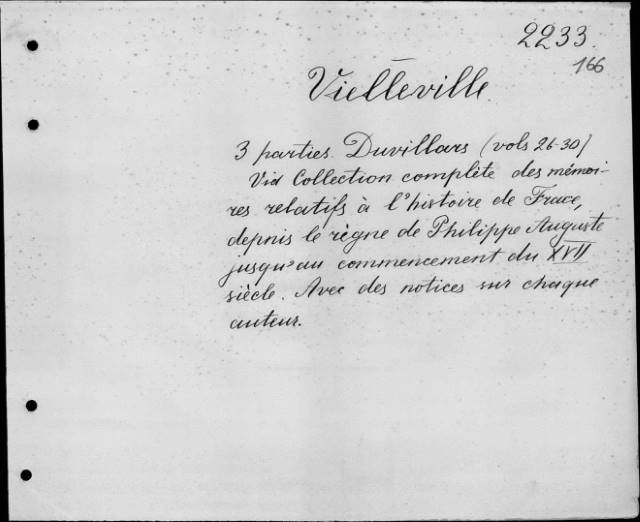 2233.
166
Vielleville.
3 parties. Duvillars (vols 26-30)
Vid Collection complète des mémoi-
res relatifs à l'histoire de Frace,
depnis le règne de Philippe Auguste
jusqu'au commencement du XVII
siècle. Avec des notices sur chaque
auteur.